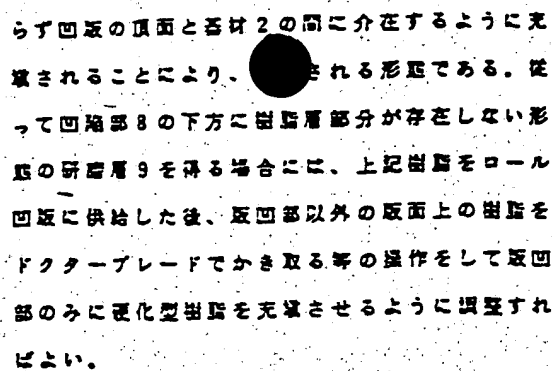 らず凹版の頂面と基材2の間に介在するように充
填されることにより、される形態である。従
って凹陥部8の下方に樹脂層部分が存在しない形
態の研磨層9を得る場合には、上記樹脂をロール
凹版に供給した後、版凹部以外の版面上の樹脂を
ドクターブレードでかき取る等の操作をして版凹
部のみに硬化型樹脂を充填させるように調整すれ
ばよい。